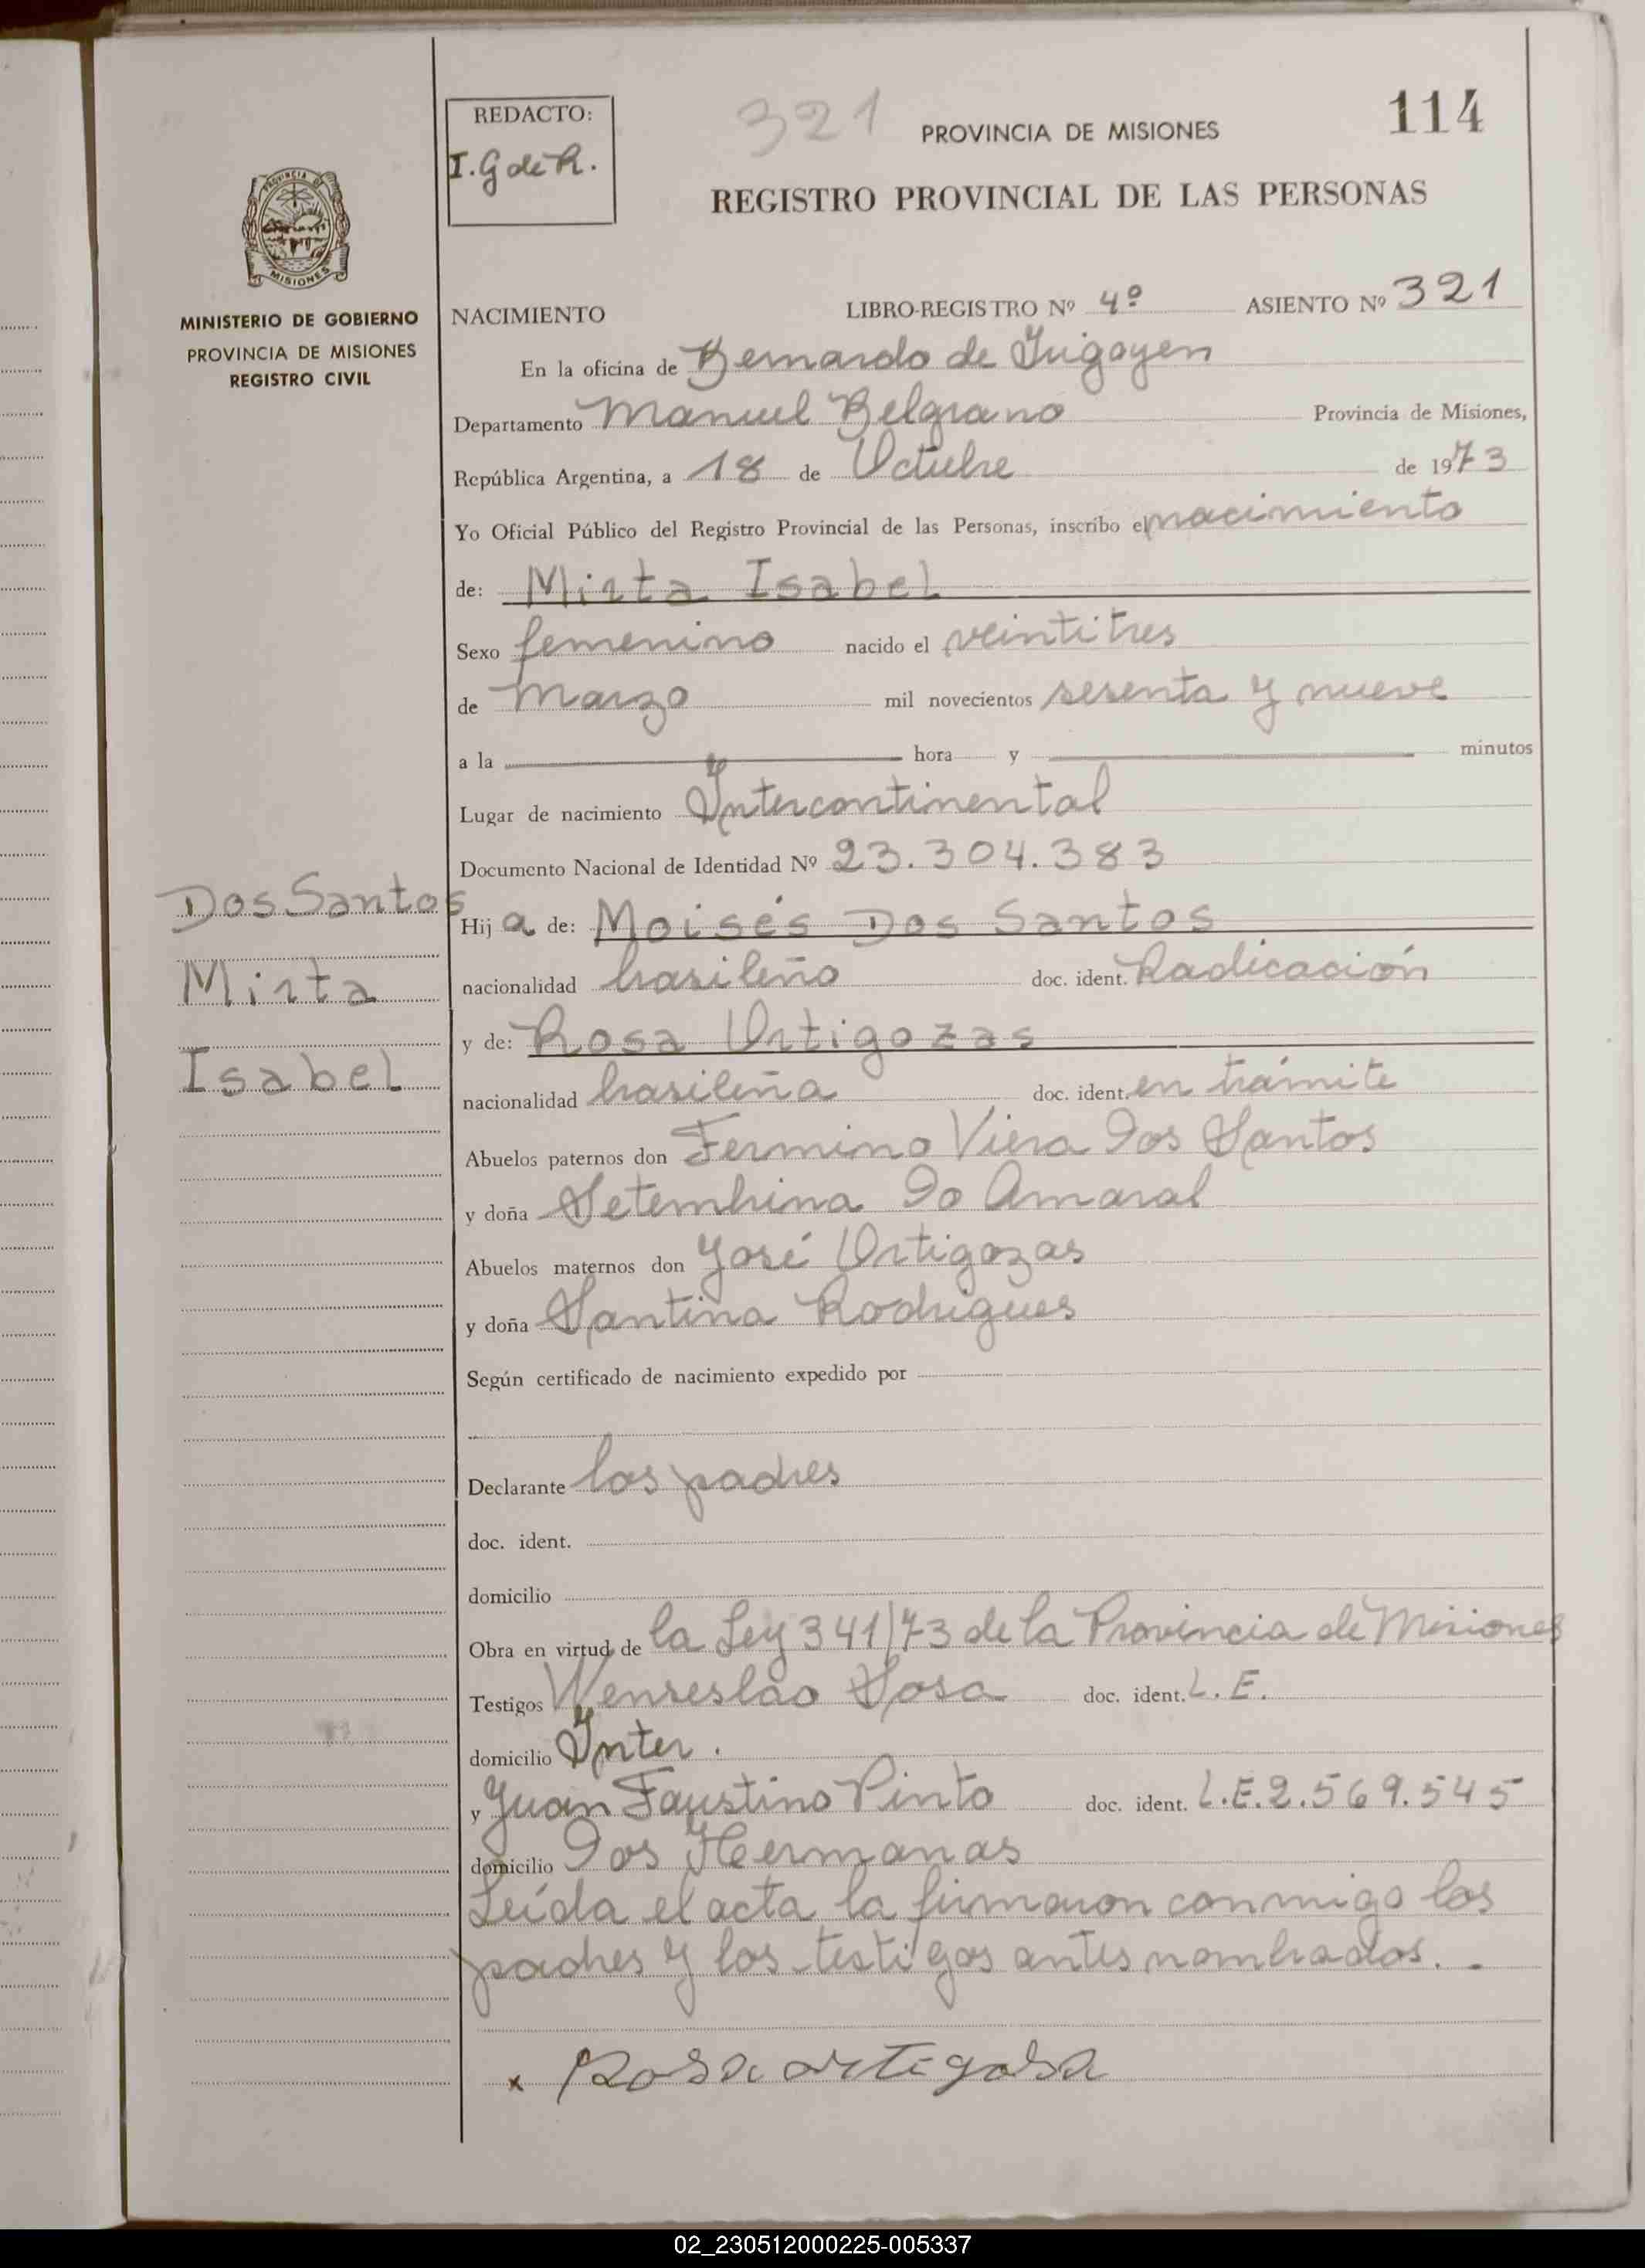 REDACTO:
I.G de R.
321
PROVINCIA DE MISIONES
114
REGISTRO PROVINCIAL DE LAS PERSONAS
PROVINCIA DE
MISIONES
MINISTERIO DE GOBIERNO
PROVINCIA DE MISIONES
REGISTRO CIVIL
NACIMIENTO LIBRO-REGISTRO Nº 4º ASIENTO Nº 321
En la oficina de Bernardo de Irigoyen
Departamento Manuel Belgrano Provincia de Misiones,
República Argentina, a 18 de Octubre de 1973
Yo Oficial Público del Registro Provincial de las Personas, inscribo el nacimiento
de: Mirta Isabel
Sexo femenino nacido el veintitres
de Marzo mil novecientos sesenta y nueve
a la hora y minutos
Lugar de nacimiento Intercontinental
Documento Nacional de Identidad Nº 23.304.383
Dos Santos
Mirta
Isabel
Hija de: Moisés Dos Santos
nacionalidad brasileño doc. ident. Radicación
y de: Rosa Ortigozas
nacionalidad brasileña doc. ident. en trámite
Abuelos paternos don Fermino Viera Dos Santos
y doña Setembrina Do Amaral
Abuelos maternos don José Ortigozas
y doña Santina Rodrigues
Según certificado de nacimiento expedido por
Declarante los padres
doc. ident.
domicilio
Obra en virtud de la Ley 341/73 de la Provincia de Misiones
Testigos Wenseslao Sosa doc. ident. L.E.
domicilio Inter.
y Juan Faustino Pinto doc. ident. L.E.2.569.545
domicilio Dos Hermanas
Leída el acta la firmaron conmigo los
padres y los testigos antes nombrados. -
x Rosa ortigosa
02_230512000225-005337